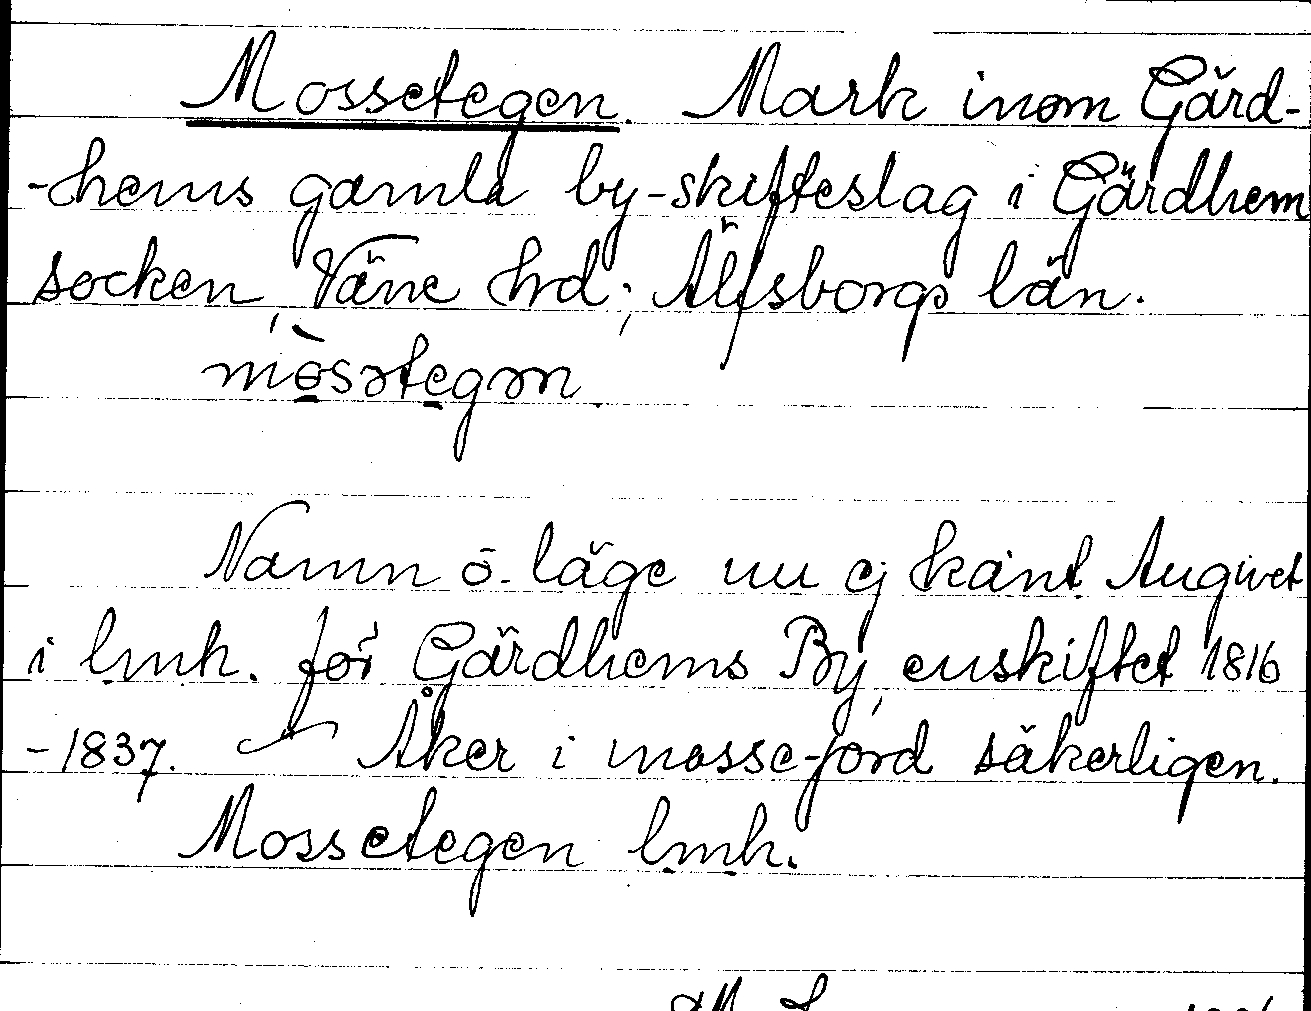 Mossetegen. Mark inom Gärd-
-hems gamla by-skifteslag i Gärdhem
socken, Väne hrd; Älfsborgs län.
mòsətegən.
Namn o. läge nu ej känt. Angivet
i lmh. för Gärdhems By, enskiftet 1816
-1837. Åker i mosse-jord säkerligen.
Mossetegen lmh.